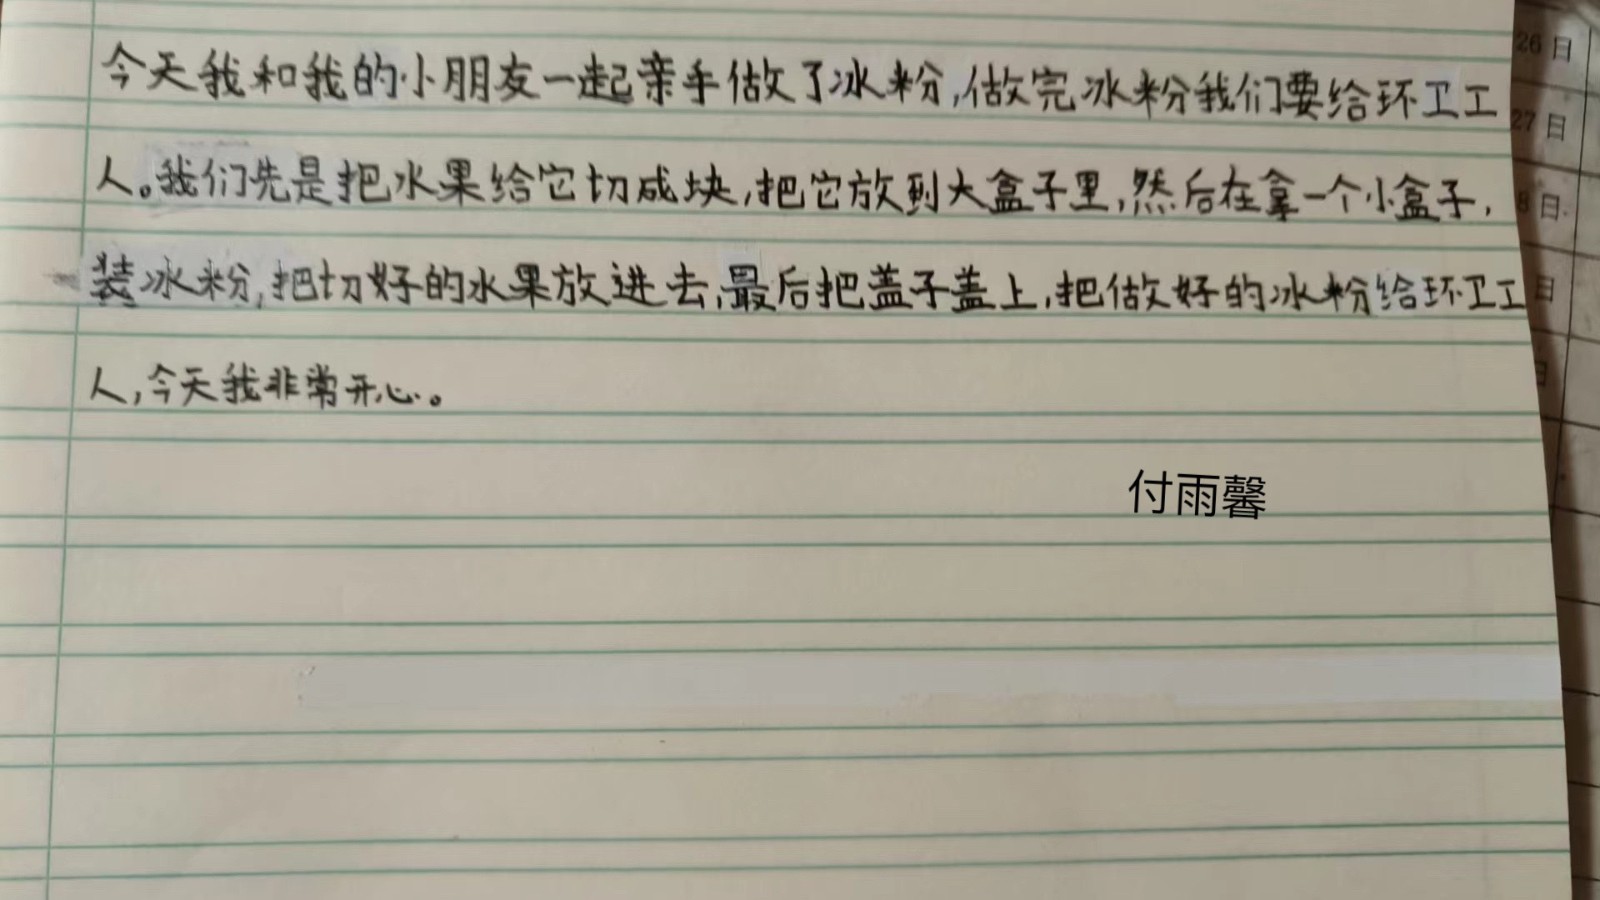 今天我和我的小朋友一起亲手做了冰粉,做完冰粉我们要给环卫工
人。我们先是把水果给它切成块,把它放到大盒子里,然后在拿一个小盒子,
装冰粉,把切好的水果放进去,最后把盖子盖上,把做好的冰粉给环卫工
人,今天我非常开心。
付雨馨
26日
27日
8日
日
日